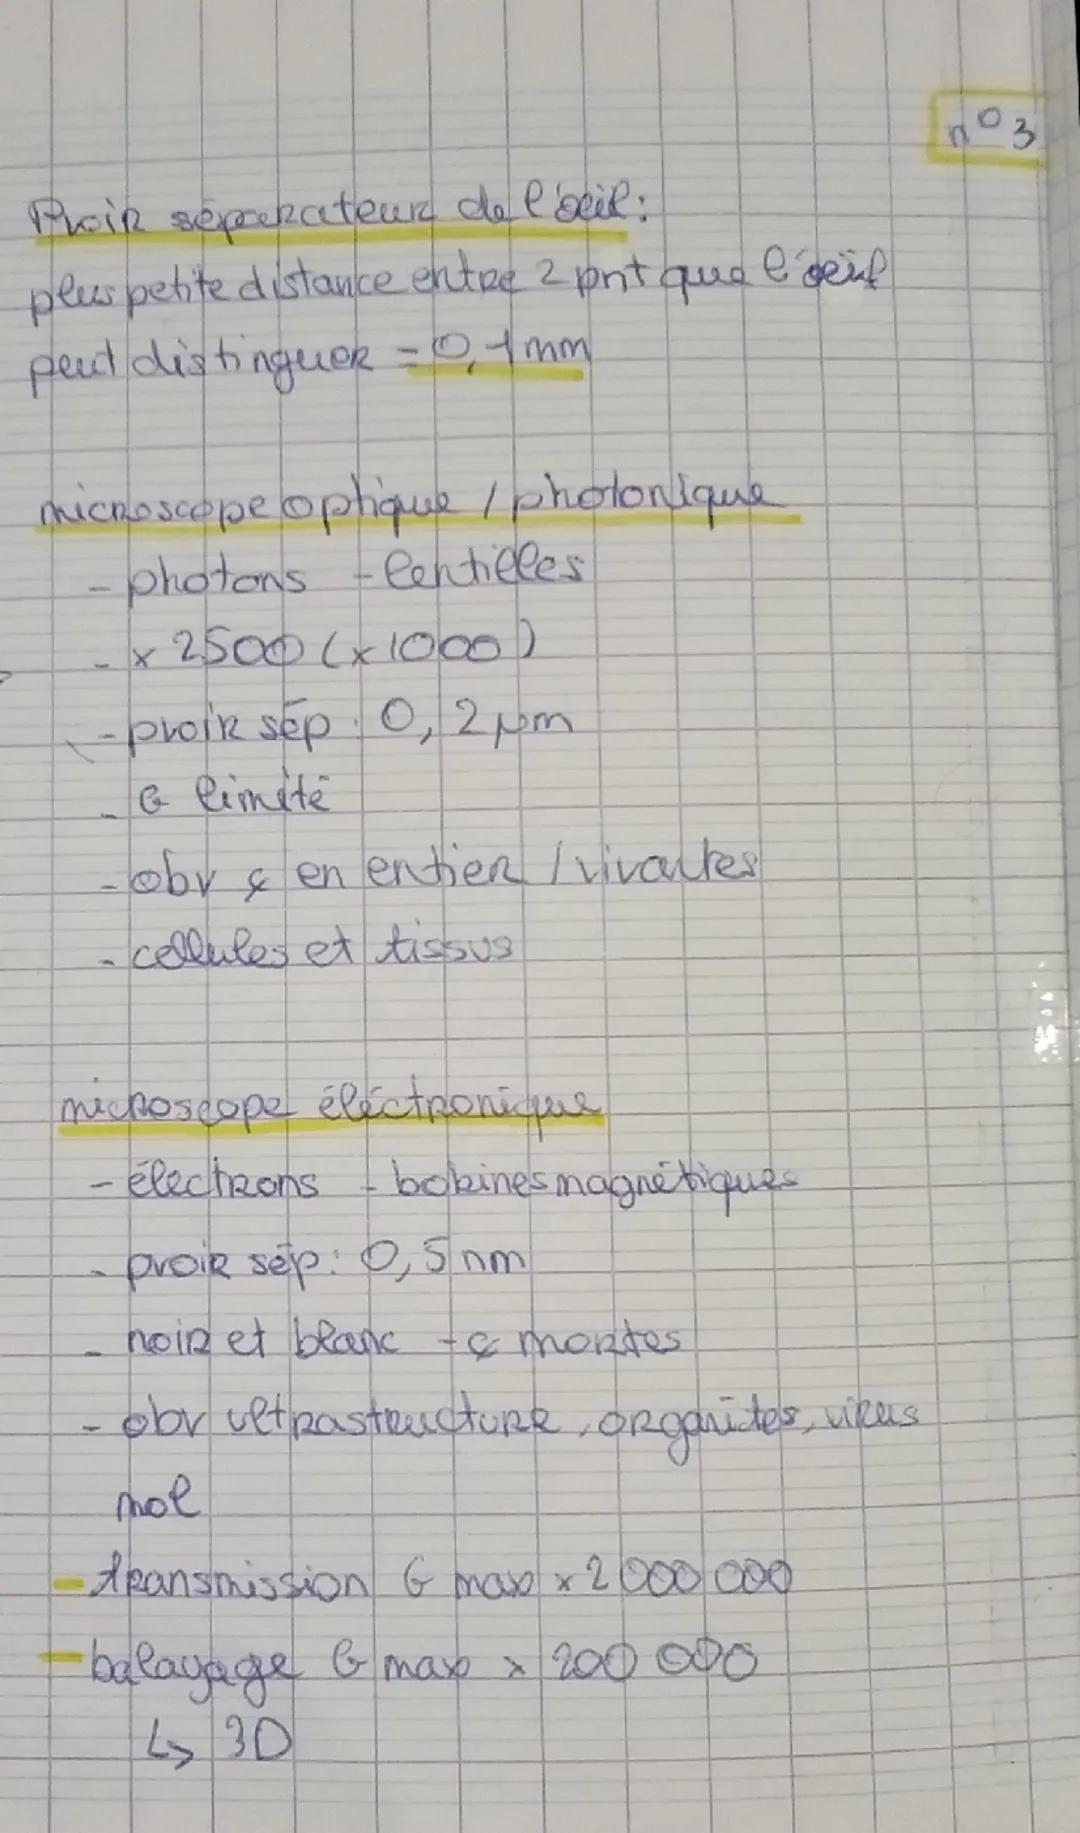 n°3
Pvoir séparateur de l'oeil :
plus petite distance entre 2 pnt que l'oeil
peut distinguer = 0,1 mm
microscope optique / photonique
- photons - lentilles
- x 2500 (x 1000)
- pvoir sép : 0,2 µm
- G limité
- obv ȼ en entier / vivantes
- cellules et tissus
microscope éléctronique
- électrons - bobines magnétiques
- pvoir sép : 0,5 nm
- noir et blanc - ȼ mortes
- obv ultrastructure, organites, virus
mol
- transmission G max x 2 000 000
- balayage G max x 200 000
↳ 3D